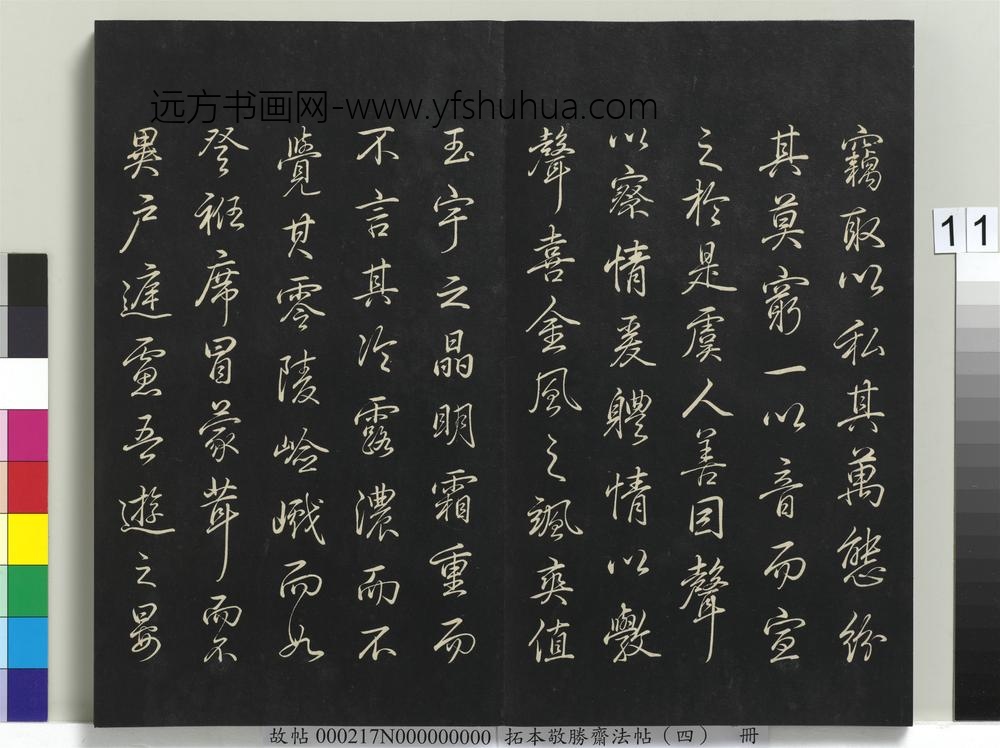 远方书画网-www.yfshuhua.com
竊取以私其萬態紛
其莫窮一以音而宣
之於是虞人善因聲
以察情爰體情以斅
聲喜金風之颯爽值
玉宇之晶明霜重而
不言其冷露濃而不
覺其零陵嶮峨而如
登衽席冒蒙茸而不
異戶庭慮吾遊之晏
11
故帖000217N000000000 拓本敬勝齋法帖（四） 冊